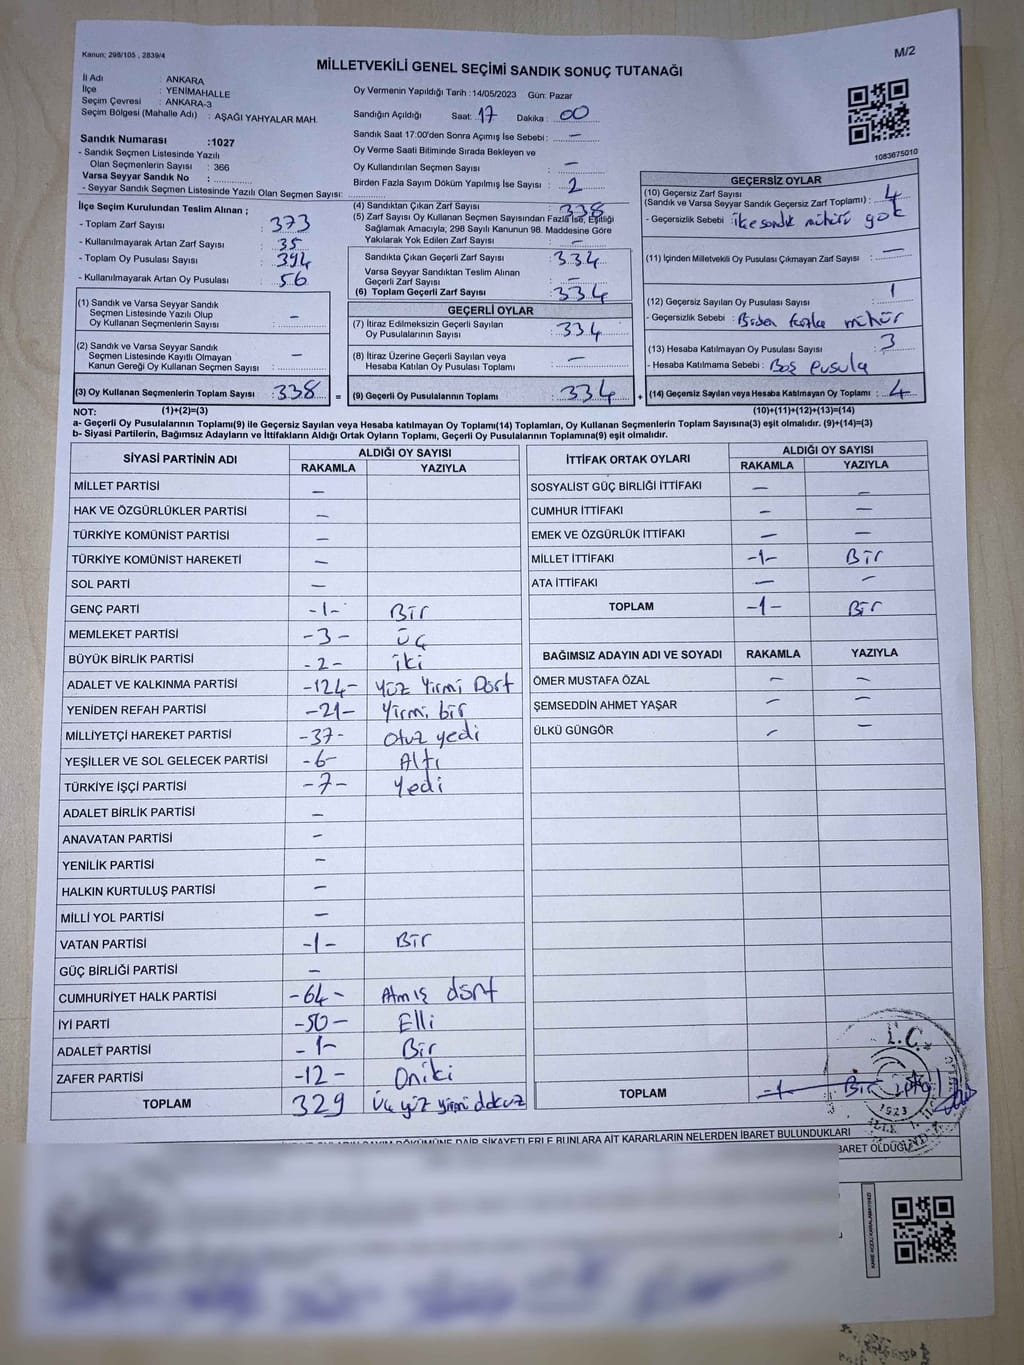 Kanun; 298/105 , 2839/4
M/2
MİLLETVEKİLİ GENEL SEÇİMİ SANDIK SONUÇ TUTANAĞI
İl Adı : ANKARA
İlçe : YENİMAHALLE
Seçim Çevresi : ANKARA-3
Seçim Bölgesi (Mahalle Adı) : AŞAĞI YAHYALAR MAH.
Sandık Numarası :1027
- Sandık Seçmen Listesinde Yazılı
Olan Seçmenlerin Sayısı : 366
Varsa Seyyar Sandık No :
- Seyyar Sandık Seçmen Listesinde Yazılı Olan Seçmen Sayısı:
Oy Vermenin Yapıldığı Tarih :14/05/2023 Gün: Pazar
Sandığın Açıldığı Saat: 17 Dakika : 00
Sandık Saat 17:00'den Sonra Açımış İse Sebebi : —
Oy Verme Saati Bitiminde Sırada Bekleyen ve
Oy Kullandırılan Seçmen Sayısı : —
Birden Fazla Sayım Döküm Yapılmış İse Sayısı : 2
1083675010
İlçe Seçim Kurulundan Teslim Alınan ;
- Toplam Zarf Sayısı : 373
- Kullanılmayarak Artan Zarf Sayısı : 35
- Toplam Oy Pusulası Sayısı : 394
- Kullanılmayarak Artan Oy Pusulası : 56
(1) Sandık ve Varsa Seyyar Sandık
Seçmen Listesinde Yazılı Olup
Oy Kullanan Seçmenlerin Sayısı : —
(2) Sandık ve Varsa Seyyar Sandık
Seçmen Listesinde Kayıtlı Olmayan
Kanun Gereği Oy Kullanan Seçmen Sayısı : —
(3) Oy Kullanan Seçmenlerin Toplam Sayısı : 338 =
(4) Sandıktan Çıkan Zarf Sayısı : 338
(5) Zarf Sayısı Oy Kullanan Seçmen Sayısından Fazla İse, Eşitliği
Sağlamak Amacıyla; 298 Sayılı Kanunun 98. Maddesine Göre
Yakılarak Yok Edilen Zarf Sayısı : —
Sandıkta Çıkan Geçerli Zarf Sayısı : 334
Varsa Seyyar Sandıktan Teslim Alınan
Geçerli Zarf Sayısı : —
(6) Toplam Geçerli Zarf Sayısı : 334
GEÇERLİ OYLAR
(7) İtiraz Edilmeksizin Geçerli Sayılan
Oy Pusulalarının Sayısı : 334
(8) İtiraz Üzerine Geçerli Sayılan veya
Hesaba Katılan Oy Pusulası Toplamı : —
(9) Geçerli Oy Pusulalarının Toplamı : 334 +
GEÇERSİZ OYLAR
(10) Geçersiz Zarf Sayısı
(Sandık ve Varsa Seyyar Sandık Geçersiz Zarf Toplamı) : 4
- Geçersizlik Sebebi : ilçe sandık mührü yok
(11) İçinden Milletvekili Oy Pusulası Çıkmayan Zarf Sayısı : —
(12) Geçersiz Sayılan Oy Pusulası Sayısı : 1
- Geçersizlik Sebebi : Birden fazla mühür
(13) Hesaba Katılmayan Oy Pusulası Sayısı : 3
- Hesaba Katılmama Sebebi : Boş pusula
(14) Geçersiz Sayılan veya Hesaba Katılmayan Oy Toplamı : 4
NOT: (1)+(2)=(3) (10)+(11)+(12)+(13)=(14)
a- Geçerli Oy Pusulalarının Toplamı(9) ile Geçersiz Sayılan veya Hesaba Katılmayan Oy Toplamı(14) Toplamları, Oy Kullanan Seçmenlerin Toplam Sayısına(3) eşit olmalıdır. (9)+(14)=(3)
b- Siyasi Partilerin, Bağımsız Adayların ve İttifakların Aldığı Ortak Oyların Toplamı, Geçerli Oy Pusulalarının Toplamına(9) eşit olmalıdır.
SİYASİ PARTİNİN ADI ALDIĞI OY SAYISI
RAKAMLA YAZIYLA
MİLLET PARTİSİ —
HAK VE ÖZGÜRLÜKLER PARTİSİ —
TÜRKİYE KOMÜNİST PARTİSİ —
TÜRKİYE KOMÜNİST HAREKETİ —
SOL PARTİ —
GENÇ PARTİ -1- Bir
MEMLEKET PARTİSİ -3- üç
BÜYÜK BİRLİK PARTİSİ -2- iki
ADALET VE KALKINMA PARTİSİ -124- Yüz Yirmi Dört
YENİDEN REFAH PARTİSİ -21- Yirmi bir
MİLLİYETÇİ HAREKET PARTİSİ -37- otuz yedi
YEŞİLLER VE SOL GELECEK PARTİSİ -6- Altı
TÜRKİYE İŞÇİ PARTİSİ -7- Yedi
ADALET BİRLİK PARTİSİ —
ANAVATAN PARTİSİ —
YENİLİK PARTİSİ —
HALKIN KURTULUŞ PARTİSİ —
MİLLİ YOL PARTİSİ —
VATAN PARTİSİ -1- Bir
GÜÇ BİRLİĞİ PARTİSİ —
CUMHURİYET HALK PARTİSİ -64- Atmış dört
İYİ PARTİ -50- Elli
ADALET PARTİSİ -1- Bir
ZAFER PARTİSİ -12- Oniki
TOPLAM 329 Üç yüz yirmi dokuz
İTTİFAK ORTAK OYLARI ALDIĞI OY SAYISI
RAKAMLA YAZIYLA
SOSYALİST GÜÇ BİRLİĞİ İTTİFAKI — —
CUMHUR İTTİFAKI — —
EMEK VE ÖZGÜRLÜK İTTİFAKI — —
MİLLET İTTİFAKI -1- Bir
ATA İTTİFAKI — —
TOPLAM -1- Bir
BAĞIMSIZ ADAYIN ADI VE SOYADI RAKAMLA YAZIYLA
ÖMER MUSTAFA ÖZAL — —
ŞEMSEDDİN AHMET YAŞAR — —
ÜLKÜ GÜNGÖR — —
TOPLAM -1 Bir iptal
T.C.
1923
DÖKÜMÜNE DAİR ŞİKAYETLERLE BUNLARA AİT KARARLARIN NELERDEN İBARET BULUNDUKLARI